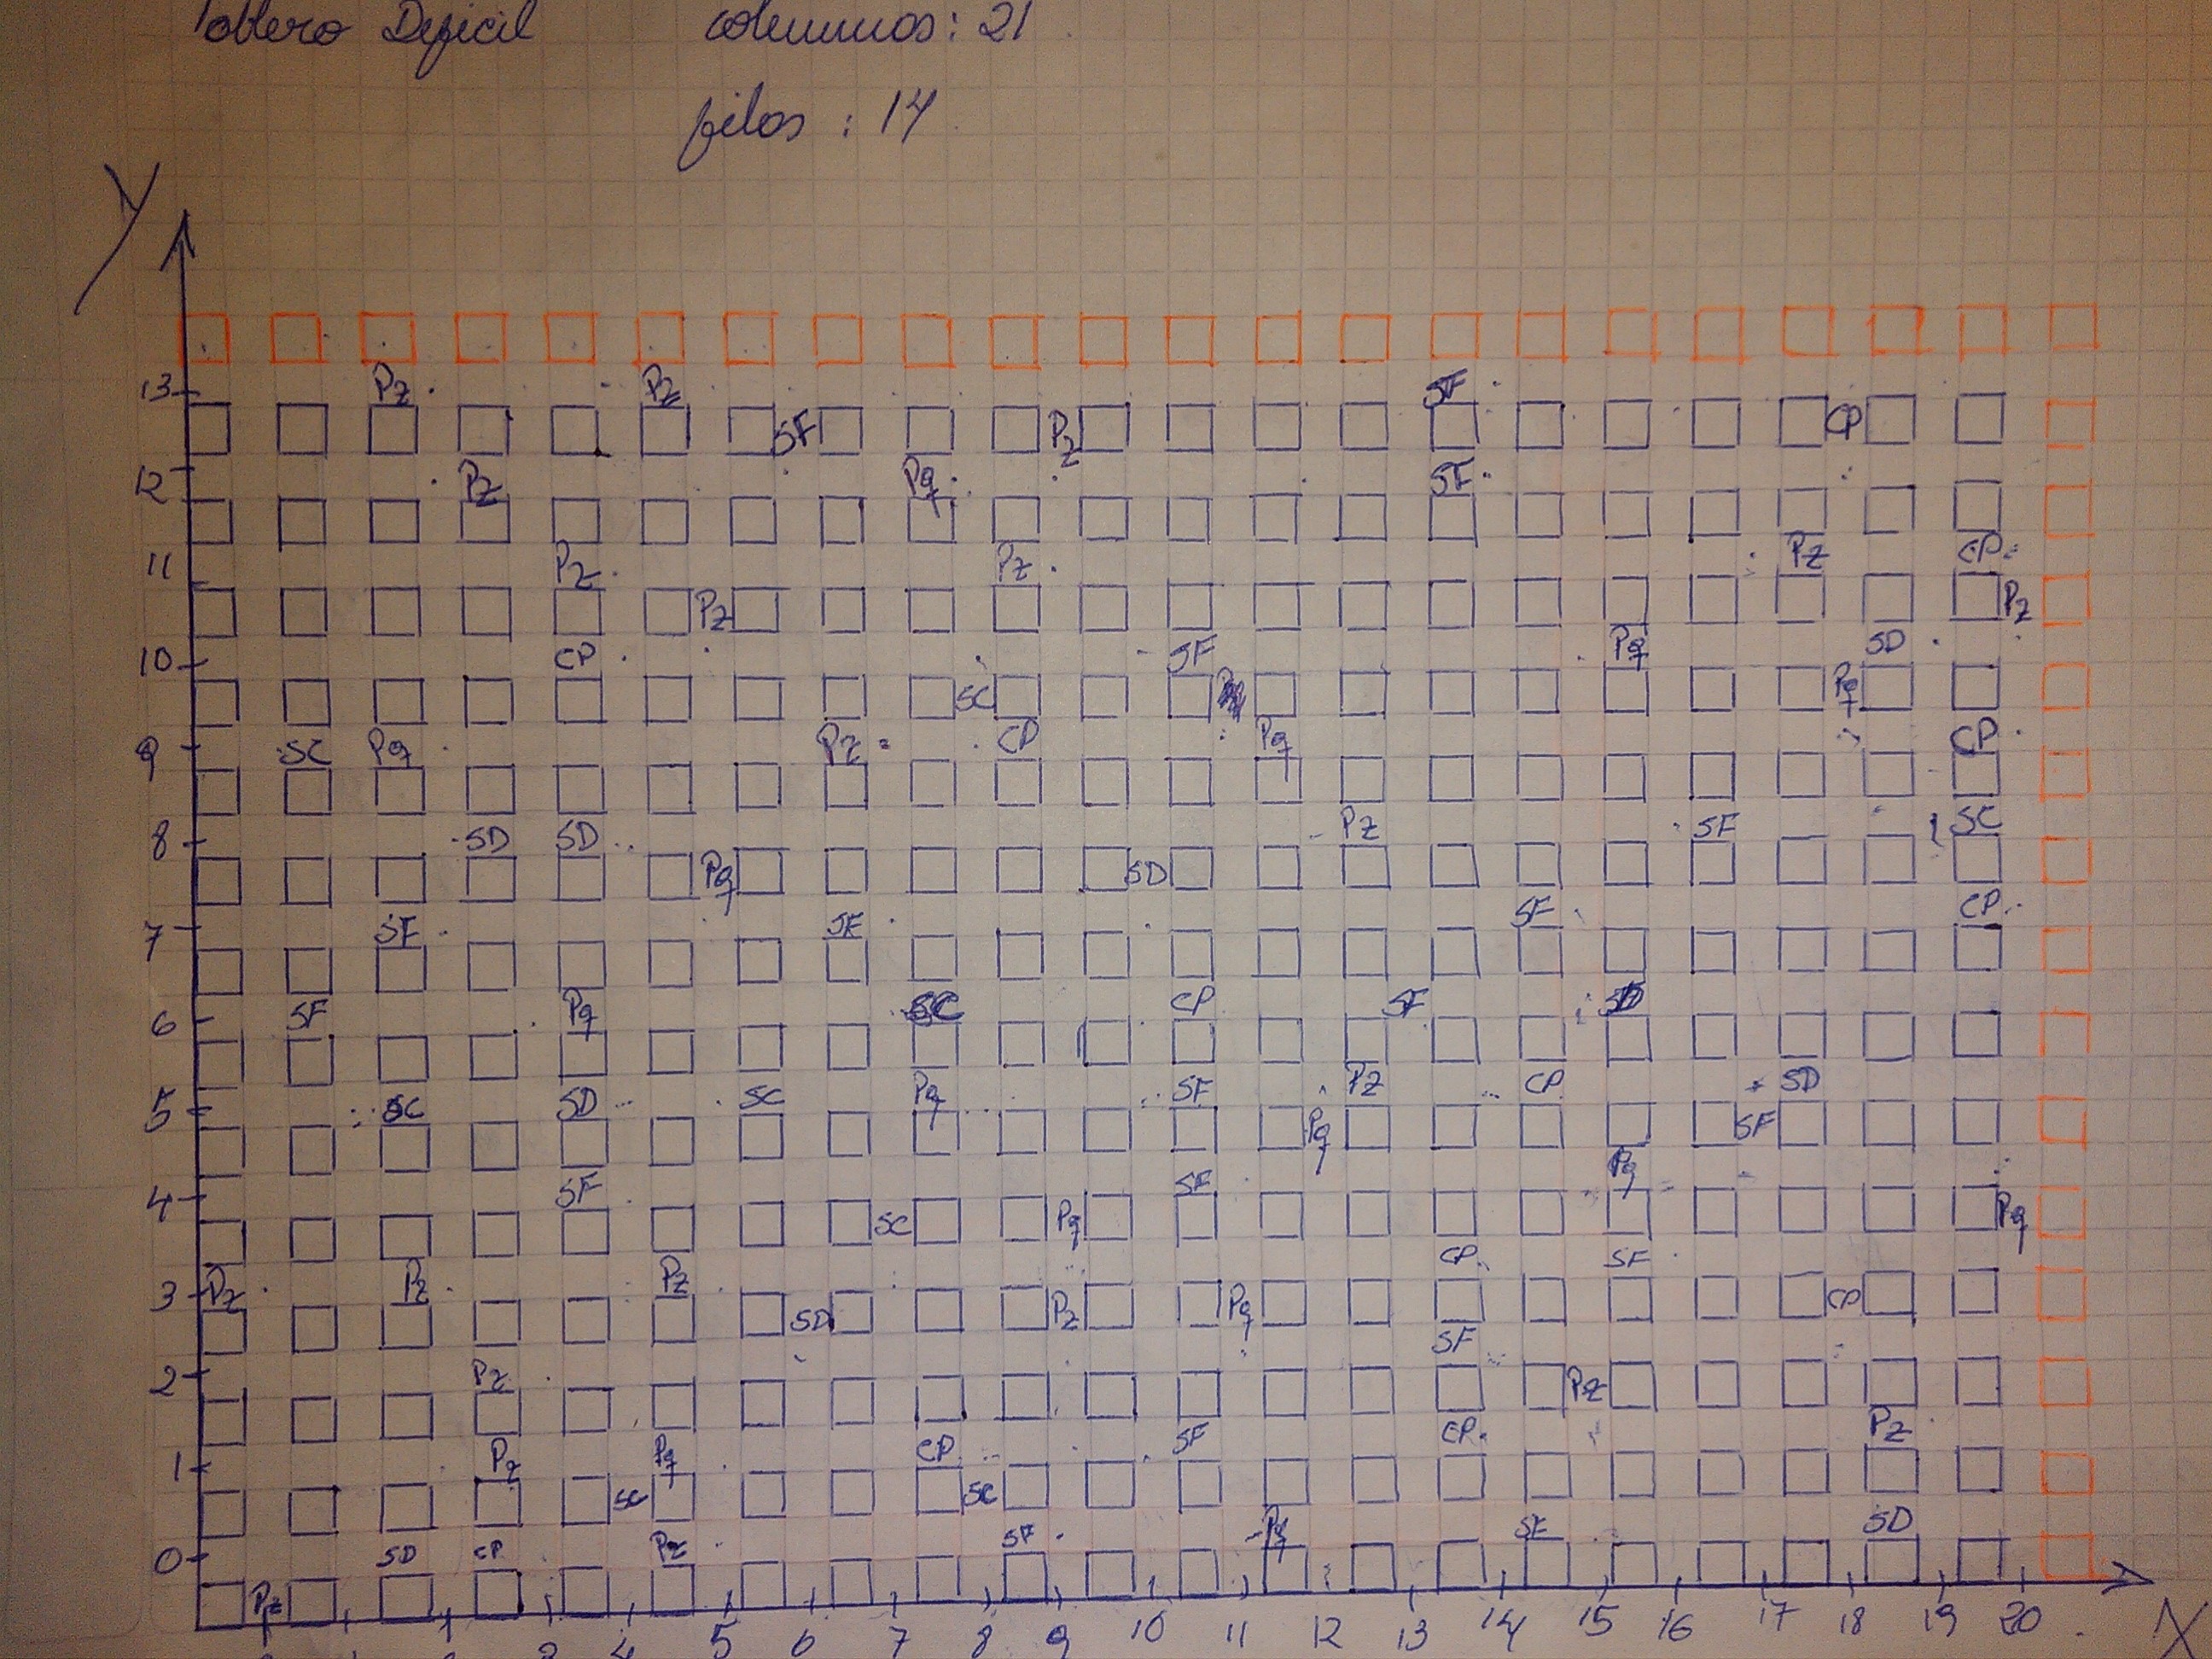 Tablero Dificil columnas: 21
filas : 14
Y
13 Pz Pz SF
SF Pz CP
12 Pz Pq SF
11 Pz Pz Pz CP
Pz Pz
10 CP SF Pq SD
SC Pq
9 SC Pq Pz CP Pq CP
8 SD SD Pz SF SC
Pq SD
7 SF SF SF CP
6 SF Pq SC CP SF SD
5 SC SD SC Pq SF Pz CP SD
Pq SF
4 SF SF Pq
SC Pq Pq
3 Pz Pz Pz CP SF
SD Pz Pq CP
2 Pz SF
Pz
1 Pq Pq CP SF CP Pz
SC SC
0 SD CP Pz SF Pq SF SD
Pz
4 5 6 7 8 9 10 11 12 13 14 15 16 17 18 19 20 X